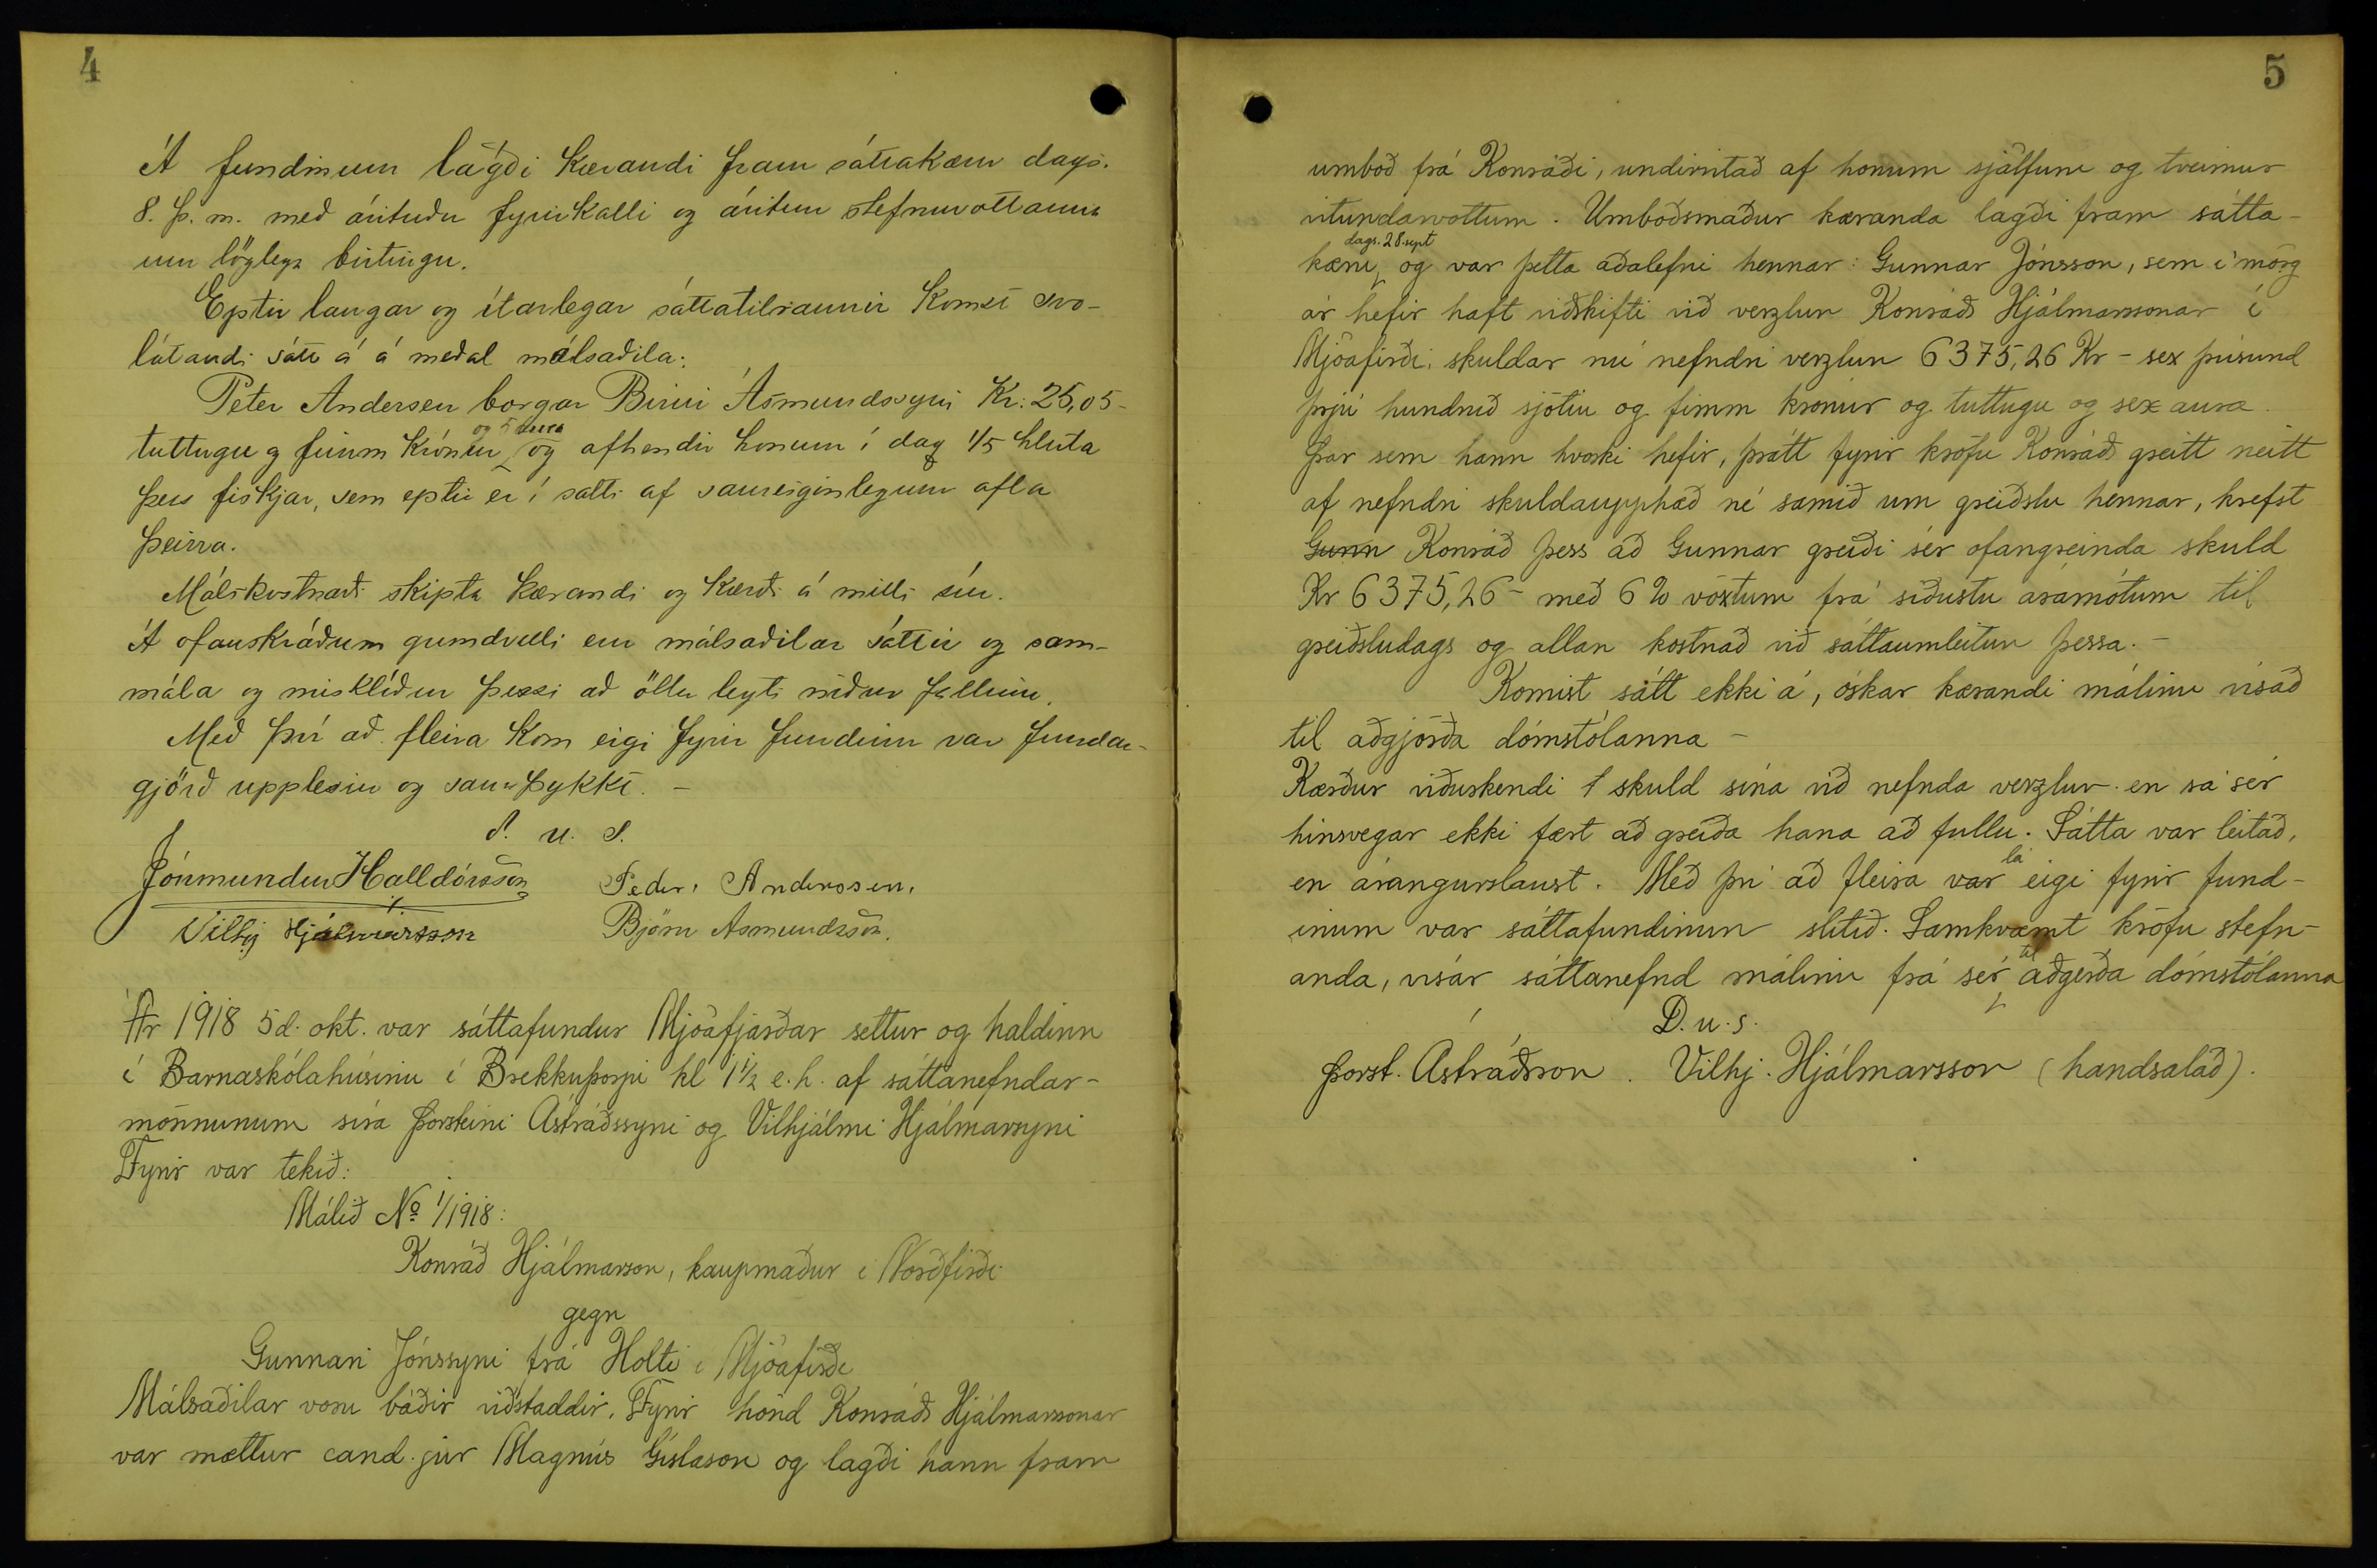 4
Á fundinum lagði kærandi fram sáttakæru dags.
8. þ. m. með árituðu fyrirkalli og áritun stefnuvottanna
um löglega birtingu.
Eptir langar og ítarlegar sáttatilraunir komst svo-
látandi sátt á á meðal málsaðila:
Peter Andersen borgar Birni Ásmundssyni Kr: 25,05-
tuttugu og fimm krónur og 5 aura og afhendir honum í dag 1/5 hluta
þess fiskjar, sem eptir er í salti af sameiginlegum afla
þeirra.
Málskostnaði skipta kærandi og kærði á milli sín.
Á ofanskráðum grundvelli eru málsaðilar sáttir og sam-
mála og misklíður þessi að öllu leyti niður fallinn.
Með því að fleira kom eigi fyrir fundinn var fundar-
gjörð upplesin og samþykkt. -
D. u. S.
Jónmundur Halldórsson Peder Andersen,
Vilhj Hjálmarsson Björn Asmundsson.
Ár 1918 5 d. okt. var sáttafundur Mjóafjarðar settur og haldinn
í Barnaskólahúsinu í Brekkuþorpi kl 1 1/2 e.h. af sáttanefndar-
mönnunum síra Þorsteini Ástráðssyni og Vilhjálmi Hjálmarsyni
Fyrir var tekið:
Málið No 1/1918:
Konráð Hjálmarson, kaupmaður í Norðfirði
gegn
Gunnari Jónssyni frá Holti í Mjóafirði
Málsaðilar voru báðir viðstaddir. Fyrir hönd Konráðs Hjálmarssonar
var mættur cand. jur Magnús Gíslason og lagði hann fram
5
umboð frá Konráði, undirritað af honum sjálfum og tveimur
vitundarvottum. Umboðsmaður kæranda lagði fram sátta-
kæru dags. 28. sept og var þetta aðalefni hennar: Gunnar Jónsson, sem í mörg
ár hefir haft viðskifti við verzlun Konráðs Hjálmarssonar í
Mjóafirði, skuldar nú nefndri verzlun 6375,26 Kr - sex þúsund
þrjú hundruð sjötíu og fimm krónur og tuttugu og sex aura.
Þar sem hann hvorki hefir, þrátt fyrir kröfu Konráðs greitt neitt
af nefndri skuldaupphæð né samið um greiðslu hennar, krefst
Gunn Konráð þess að Gunnar greiði sér ofangreinda skuld
Kr 6375,26 - með 6% vöxtum frá síðustu áramótum til
greiðsludags og allan kostnað við sáttaumleitun þessa. -
Komist sátt ekki á, óskar kærandi málinu vísað
til aðgjörða dómstólanna -
Kærður viðurkendi skuld sína við nefnda verzlun en sá sér
hinsvegar ekki fært að greiða hana að fullu. Sátta var leitað,
en árangurslaust. Með því að fleira var lá eigi fyrir fund-
inum var sáttafundinum slitið. Samkvæmt kröfu stefn-
anda, vísar sáttanefnd málinu frá sér til aðgerða dómstólanna
D. u. s.
Þorst. Ástráðsson. Vilhj. Hjálmarsson (handsalað).